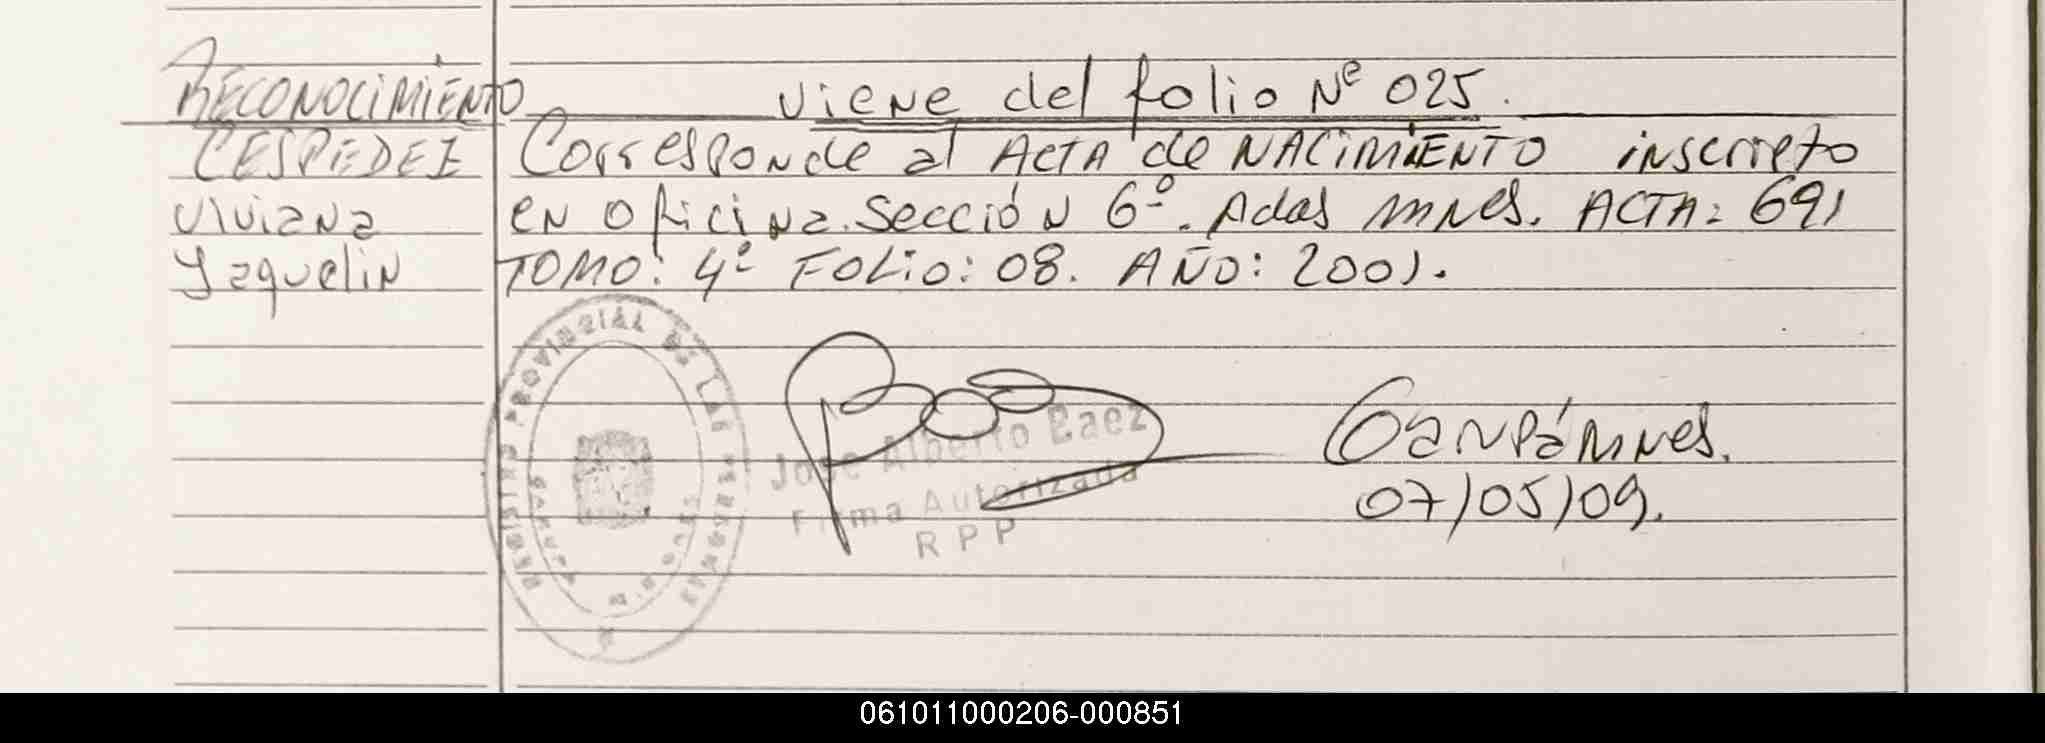 RECONOCIMIENTO
CESPEDEZ
Viviana
Yaquelin
Viene del folio Nº 025.
Corresponde al ACTA de NACIMIENTO inscrreto
en Oficina. Sección 6º. Adas mnes. ACTA: 691
TOMO: 4º FOLIO: 08. AÑO: 2001.
REGISTRO PROVINCIAL DE LAS PERSONAS
José Alberto Baez
Firma Autorizada
R P P
Garupá Mnes.
07/05/09.
061011000206-000851